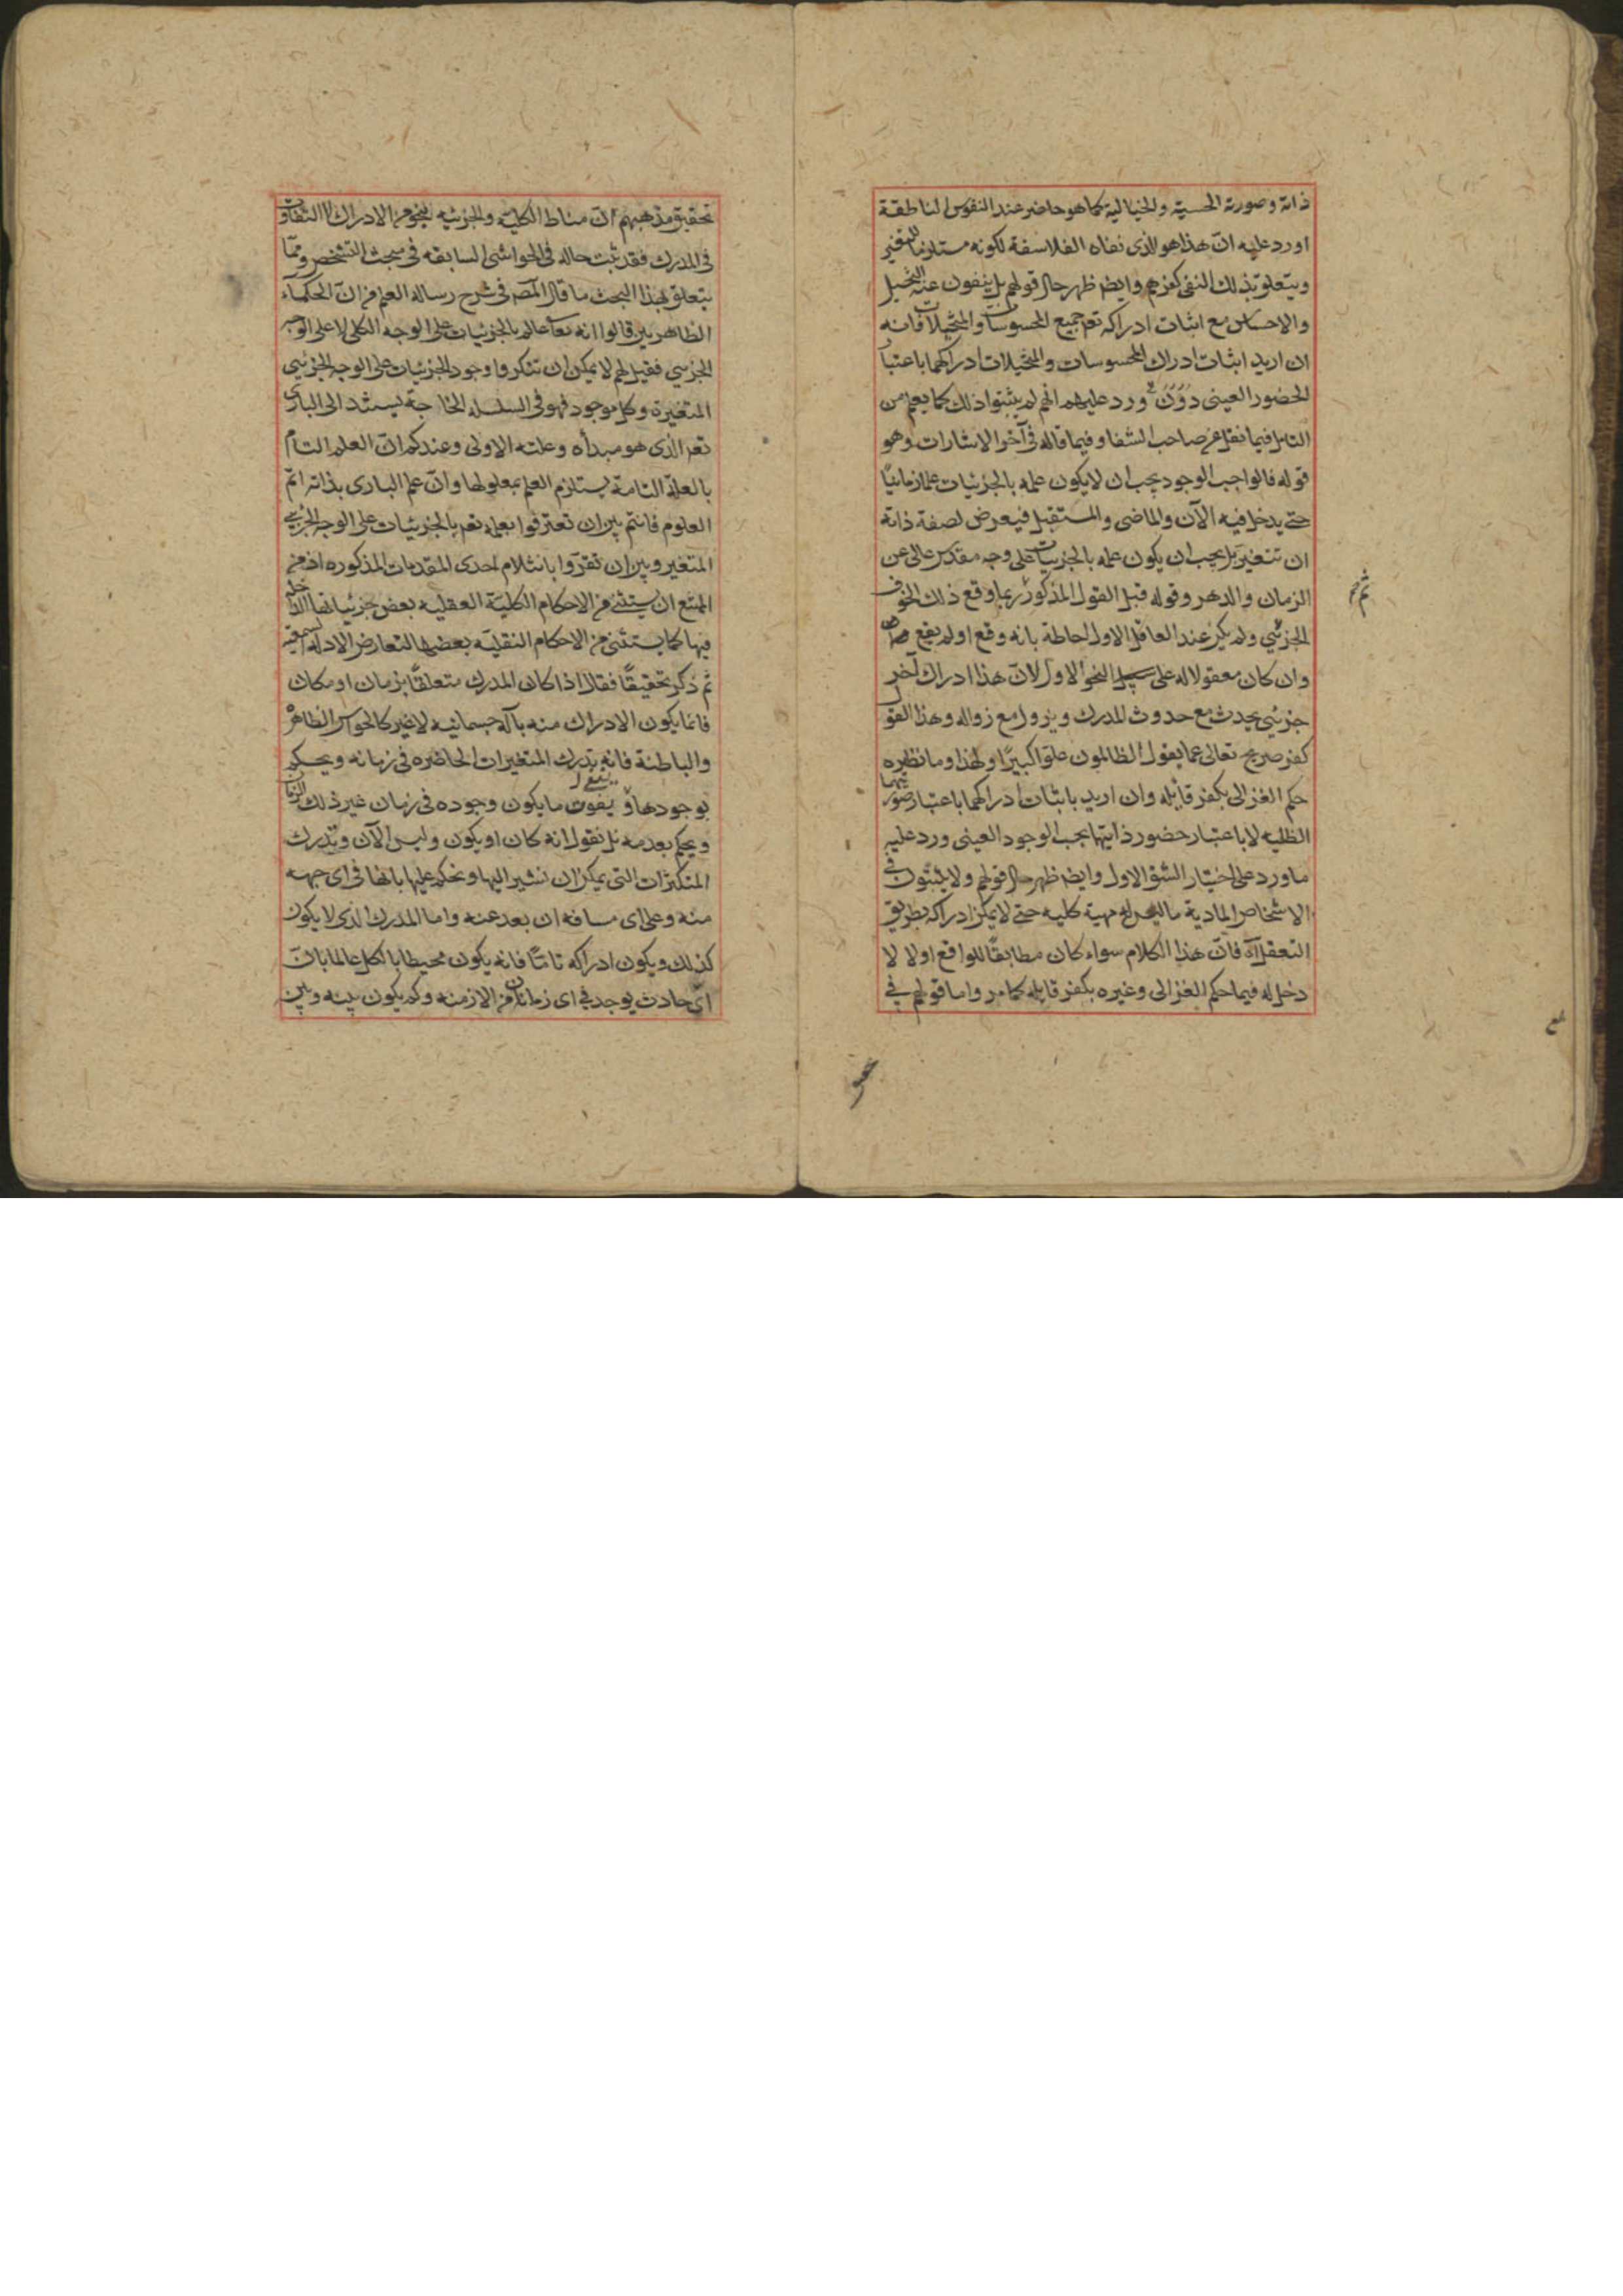 ذاته وصورته الحسية والخيالية كما هو حاضر عند النفوس الناطقة
اورد عليه ان هذا هو الذى نفاه الفلاسفة لكونه مستلزما للتغير
ويتعلق بذلك النفى كفرهم وايضا ظهر حال قولهم بل ينفون عنه التخيل
والاحساس مع اثبات ادراكه تعم جميع المحسوسات والمتخيلات فانه
ان اريد اثبات ادراك المحسوسات والمتخيلات ادراكهما باعتبار
الحضور العينى ورد عليهم انهم لم يثبتوا ذلك كما يعلم من
التامل فيما نقل عن صاحب الشفا وفيما قاله فى آخر الاشارات وهو
قوله فالواجب الوجود يجب ان لا يكون علمه بالجزئيات علما زمانيا
حتى يدخل فيه الآن والماضى والمستقبل فيعرض لصفة ذاته
ان تتغير بل يجب ان يكون علمه بالجزئيات على وجه مقدس عالى عن
الزمان والدهر وقوله قبل القول المذكور ربما وقع ذلك الخسوف
الجزئي ولم يكن عند العاقل الاول احاطة بانه وقع او لم يقع
وان كان معقولا له على سبيل النحو الاول لان هذا ادراك آخر
جزئي يحدث مع حدوث المدرك ويزول مع زواله وهذا القول
كفر صريح تعالى عما يقول الظالمون علوا كبيرا ولهذا وما نظيره
حكم الغزالى بكفر قايله وان اريد باثبات ادراكهما باعتبار صورتيهما
الظلية لا باعتبار حضور ذاتيهما بحسب الوجود العينى ورد عليه
ما ورد على اختيار الشق الاول وايضا ظهر حال قولهم ولا يثبتون فى
الاشخاص المادية ما ليس له مهية كلية حتى لا يمكن ادراكه بطريق
التعقل آه فان هذا الكلام سواء كان مطابقا للواقع اولا لا
دخل له فيما حكم الغزالى وغيره بكفر قايله كما مر واما قولهم فى
تحقيق مذهبهم ان مناط الكلية والجزئية نحو من الادراك لا التفاوت
فى المدرك فقد ثبت حاله فى الحواشى السابقه فى مبحث التشخص ومما
يتعلق بهذا البحث ما قال المص فى شرح رسالة العلم من ان الحكماء
الظاهريين قالوا انه تعا عالم بالجزئيات على الوجه الكلى لا على الوجه
الجزئي فقيل لهم لا يمكن ان تنكروا وجود الجزئيات على الوجه الجزئي
المتغيرة وكل موجود فهو فى السلسلة الحاجة يستند الى البارى
تعم الذى هو مبدأه وعلته الاولى وعندكم ان العلم التام
بالعلة التامة يستلزم العلم بمعلولها وان علم البارى بذاته اتم
العلوم فانتم بين ان تعترفوا بعلمه تعم بالجزئيات على الوجه الجزئي
المتغير وبين ان تقروا بانثلام احدى المقدمات المذكوره اذ من
الممتنع ان يستثنى من الاحكام الكلية العقلية بعض جزئياتها الداخلة
فيها كما يستثنى من الاحكام النقلية بعضها لتعارض الادلة السمعية
ثم ذكر تحقيقا فقال اذا كان المدرك متعلقا بزمان او مكان
فانما يكون الادراك منه بآلة جسمانيه لا غير كالحواس الظاهرة
والباطنة فانه يدرك المتغيرات الحاضره فى زمانه ويحكم
بوجودها ويفوت ما يكون وجوده فى زمان غير ذلك الزمان
ويحكم بعدمه بل نقول انه كان او يكون وليس الآن ويدرك
المتكثرات التى يمكن ان نشير اليها ونحكم عليها بانها فى اى جهه
منه وعلى اى مسافه ان بعد عنه واما المدرك الذى لا يكون
كذلك ويكون ادراكه تاما فانه يكون محيطا بالكل عالما بان
اى حادث يوجد فى اى زمان من الازمنه وكم يكون بينه وبين